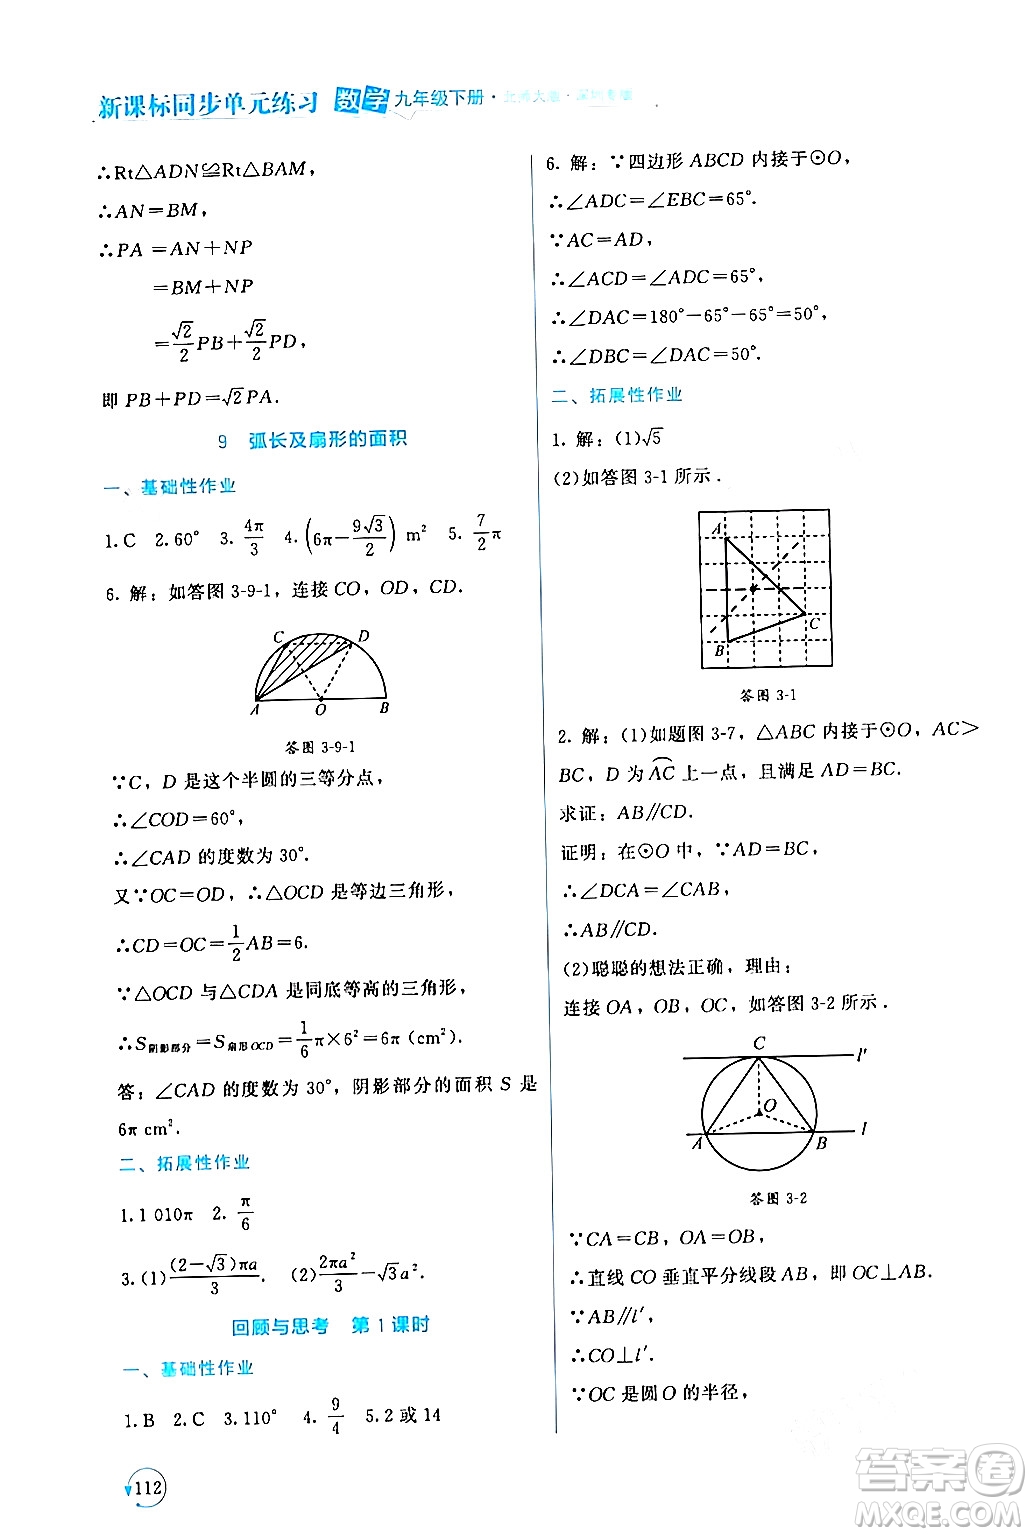 新课标同步单元练习 数学 九年级下册·北师大版·深圳专版
∴Rt△ADN≌Rt△BAM,
∴AN=BM,
∴PA=AN+NP
=BM+NP
=√2/2 PB+√2/2 PD,
即 PB+PD=√2PA.
9 弧长及扇形的面积
一、基础性作业
1.C 2.60° 3.4π/3 4.(6π-9√3/2) m² 5.7/2 π
6. 解:如答图 3-9-1,连接 CO,OD,CD.
C D
A O B
答图 3-9-1
∵C,D 是这个半圆的三等分点,
∴∠COD=60°,
∴∠CAD 的度数为 30°.
又∵OC=OD,∴△OCD 是等边三角形,
∴CD=OC=1/2 AB=6.
∵△OCD 与△CDA 是同底等高的三角形,
∴S阴影部分=S扇形OCD=1/6 π×6²=6π(cm²).
答:∠CAD 的度数为 30°,阴影部分的面积 S 是
6π cm².
二、拓展性作业
1.1 010π 2.π/6
3.(1)(2-√3)πa/3 (2)2πa²/3-√3a².
回顾与思考 第 1 课时
一、基础性作业
1.B 2.C 3.110° 4.9/4 5.2 或 14
112
6. 解:∵四边形 ABCD 内接于⊙O,
∴∠ADC=∠EBC=65°.
∵AC=AD,
∴∠ACD=∠ADC=65°,
∴∠DAC=180°-65°-65°=50°,
∴∠DBC=∠DAC=50°.
二、拓展性作业
1. 解:(1)√5
(2)如答图 3-1 所示.
A
C
B
答图 3-1
2. 解:(1)如题图 3-7,△ABC 内接于⊙O,AC>
BC,D 为 A͡C 上一点,且满足 AD=BC.
求证:AB∥CD.
证明:在⊙O 中,∵AD=BC,
∴∠DCA=∠CAB,
∴AB∥CD.
(2)聪聪的想法正确,理由:
连接 OA,OB,OC,如答图 3-2 所示.
C l′
O
A B l
答图 3-2
∵CA=CB,OA=OB,
∴直线 CO 垂直平分线段 AB,即 OC⊥AB.
∵AB∥l′,
∴CO⊥l′.
∵OC 是圆 O 的半径,
答案圈
MXQE.COM